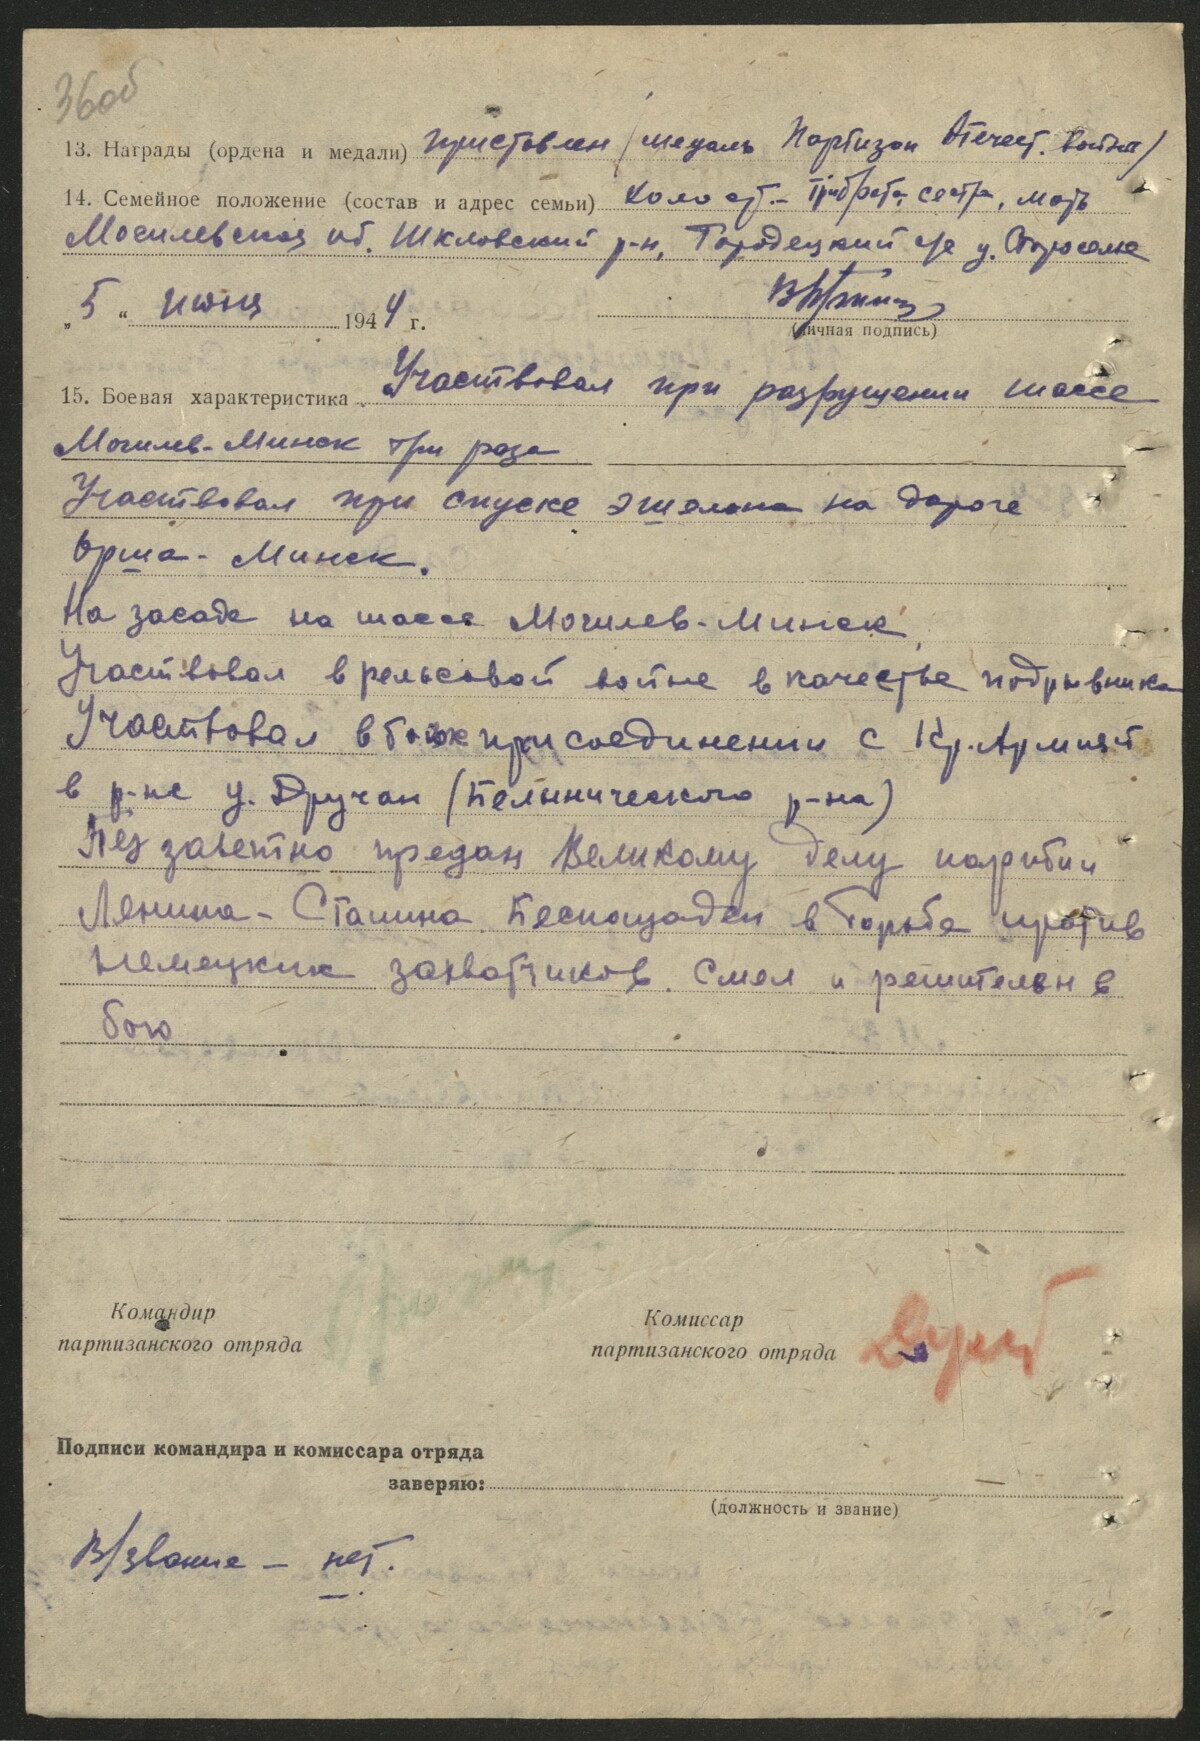 36об
13. Награды (ордена и медали) приставлен (медаль Партизан Отечест. войны)
14. Семейное положение (состав и адрес семьи) холост. – три брата, сестра, мать
Могилевская об. Шкловский р-н, Городецкий с/с д.
„ 5 “ июня 1944 г.
(личная подпись)
15. Боевая характеристика Участвовал при разрушении шоссе
Могилев-Минск три раза
Участвовал при спуске эшелона на дороге
Орша - Минск.
На засаде на шоссе Могилев-Минск,
Участвовал в рельсовой войне в качестве подрывника
Участвовал в боях при соединении с Кр. Армией
в р-не д. Дручан (Белыничского р-на)
Беззаветно предан Великому делу партии
Ленина - Сталина. Беспощаден в борьбе против
немецких захватчиков. Смел и решителен в
бою
Командир
партизанского отряда
Комиссар
партизанского отряда
Подписи командира и комиссара отряда
заверяю:
(должность и звание)
В/звание – нет.